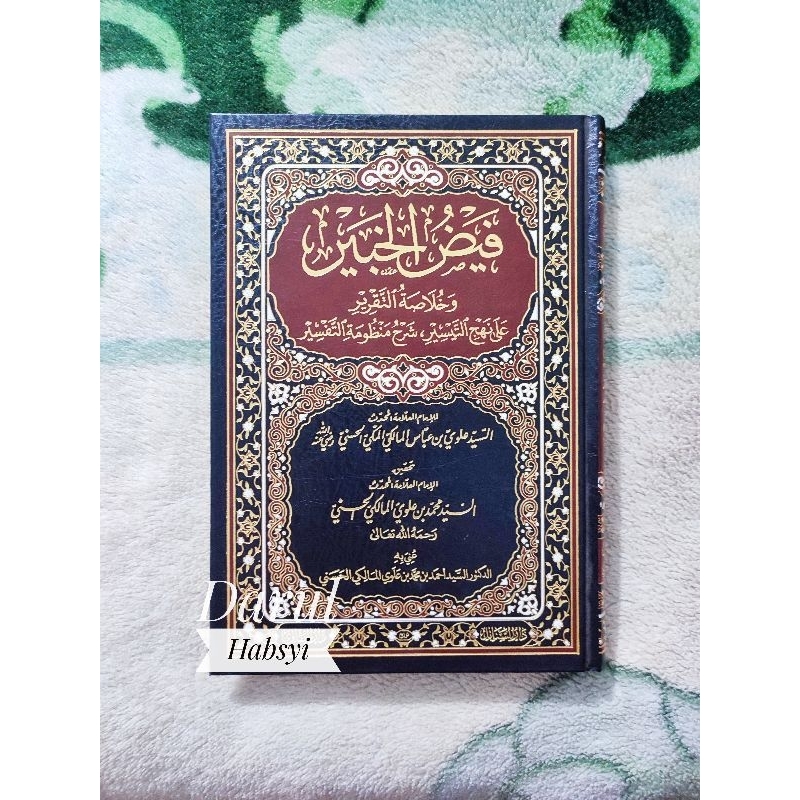 فَيْضُ الخَبِيْرِ
وَخُلَاصَةُ التَّقْرِيْرِ
عَلَى نَهْجِ التَّيْسِيْرِ، شَرْحِ مَنْظُومَةِ التَّفْسِيْرِ
للإمام العلامة المحدث
السيد علوي بن عباس المالكي المكي الحسني رضي الله عنه
تحقيق
الإمام العلامة المحدث
السيد محمد بن علوي المالكي الحسني
رحمه الله تعالى
عُنِيَ بِهِ
الدكتور السيد احمد بن محمد بن علوي المالكي الحسني
Darul
Habsyi